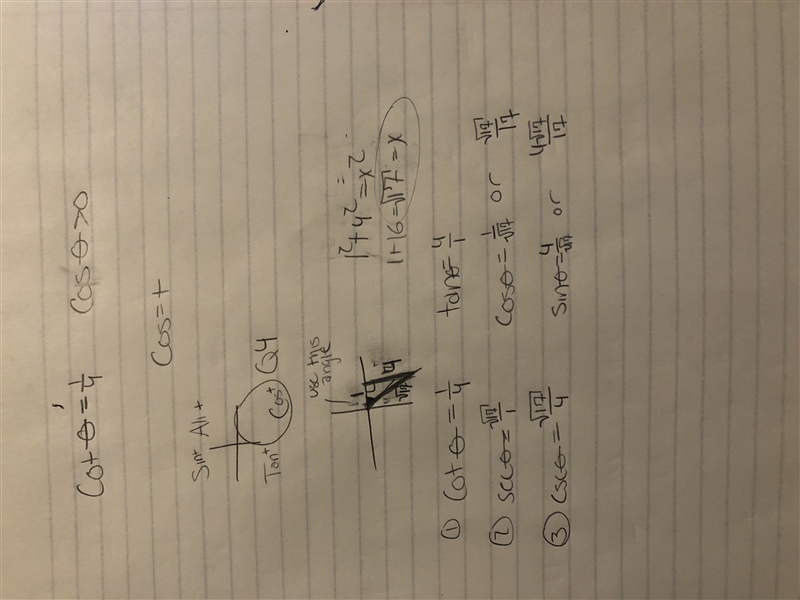 Cot θ = 1/4 Cos θ > 0
Cos = +
Sin+ All +
Tan+ Cos+ Q4
use this angle
1
4
√17
1² + 4² = x²
1 + 16 = √17 = x
① Cot θ = 1/4 tan θ = 4/1
② sec θ = √17/1 Cos θ = 1/√17 or √17/17
③ Csc θ = √17/4 sin θ = 4/√17 or 4√17/17